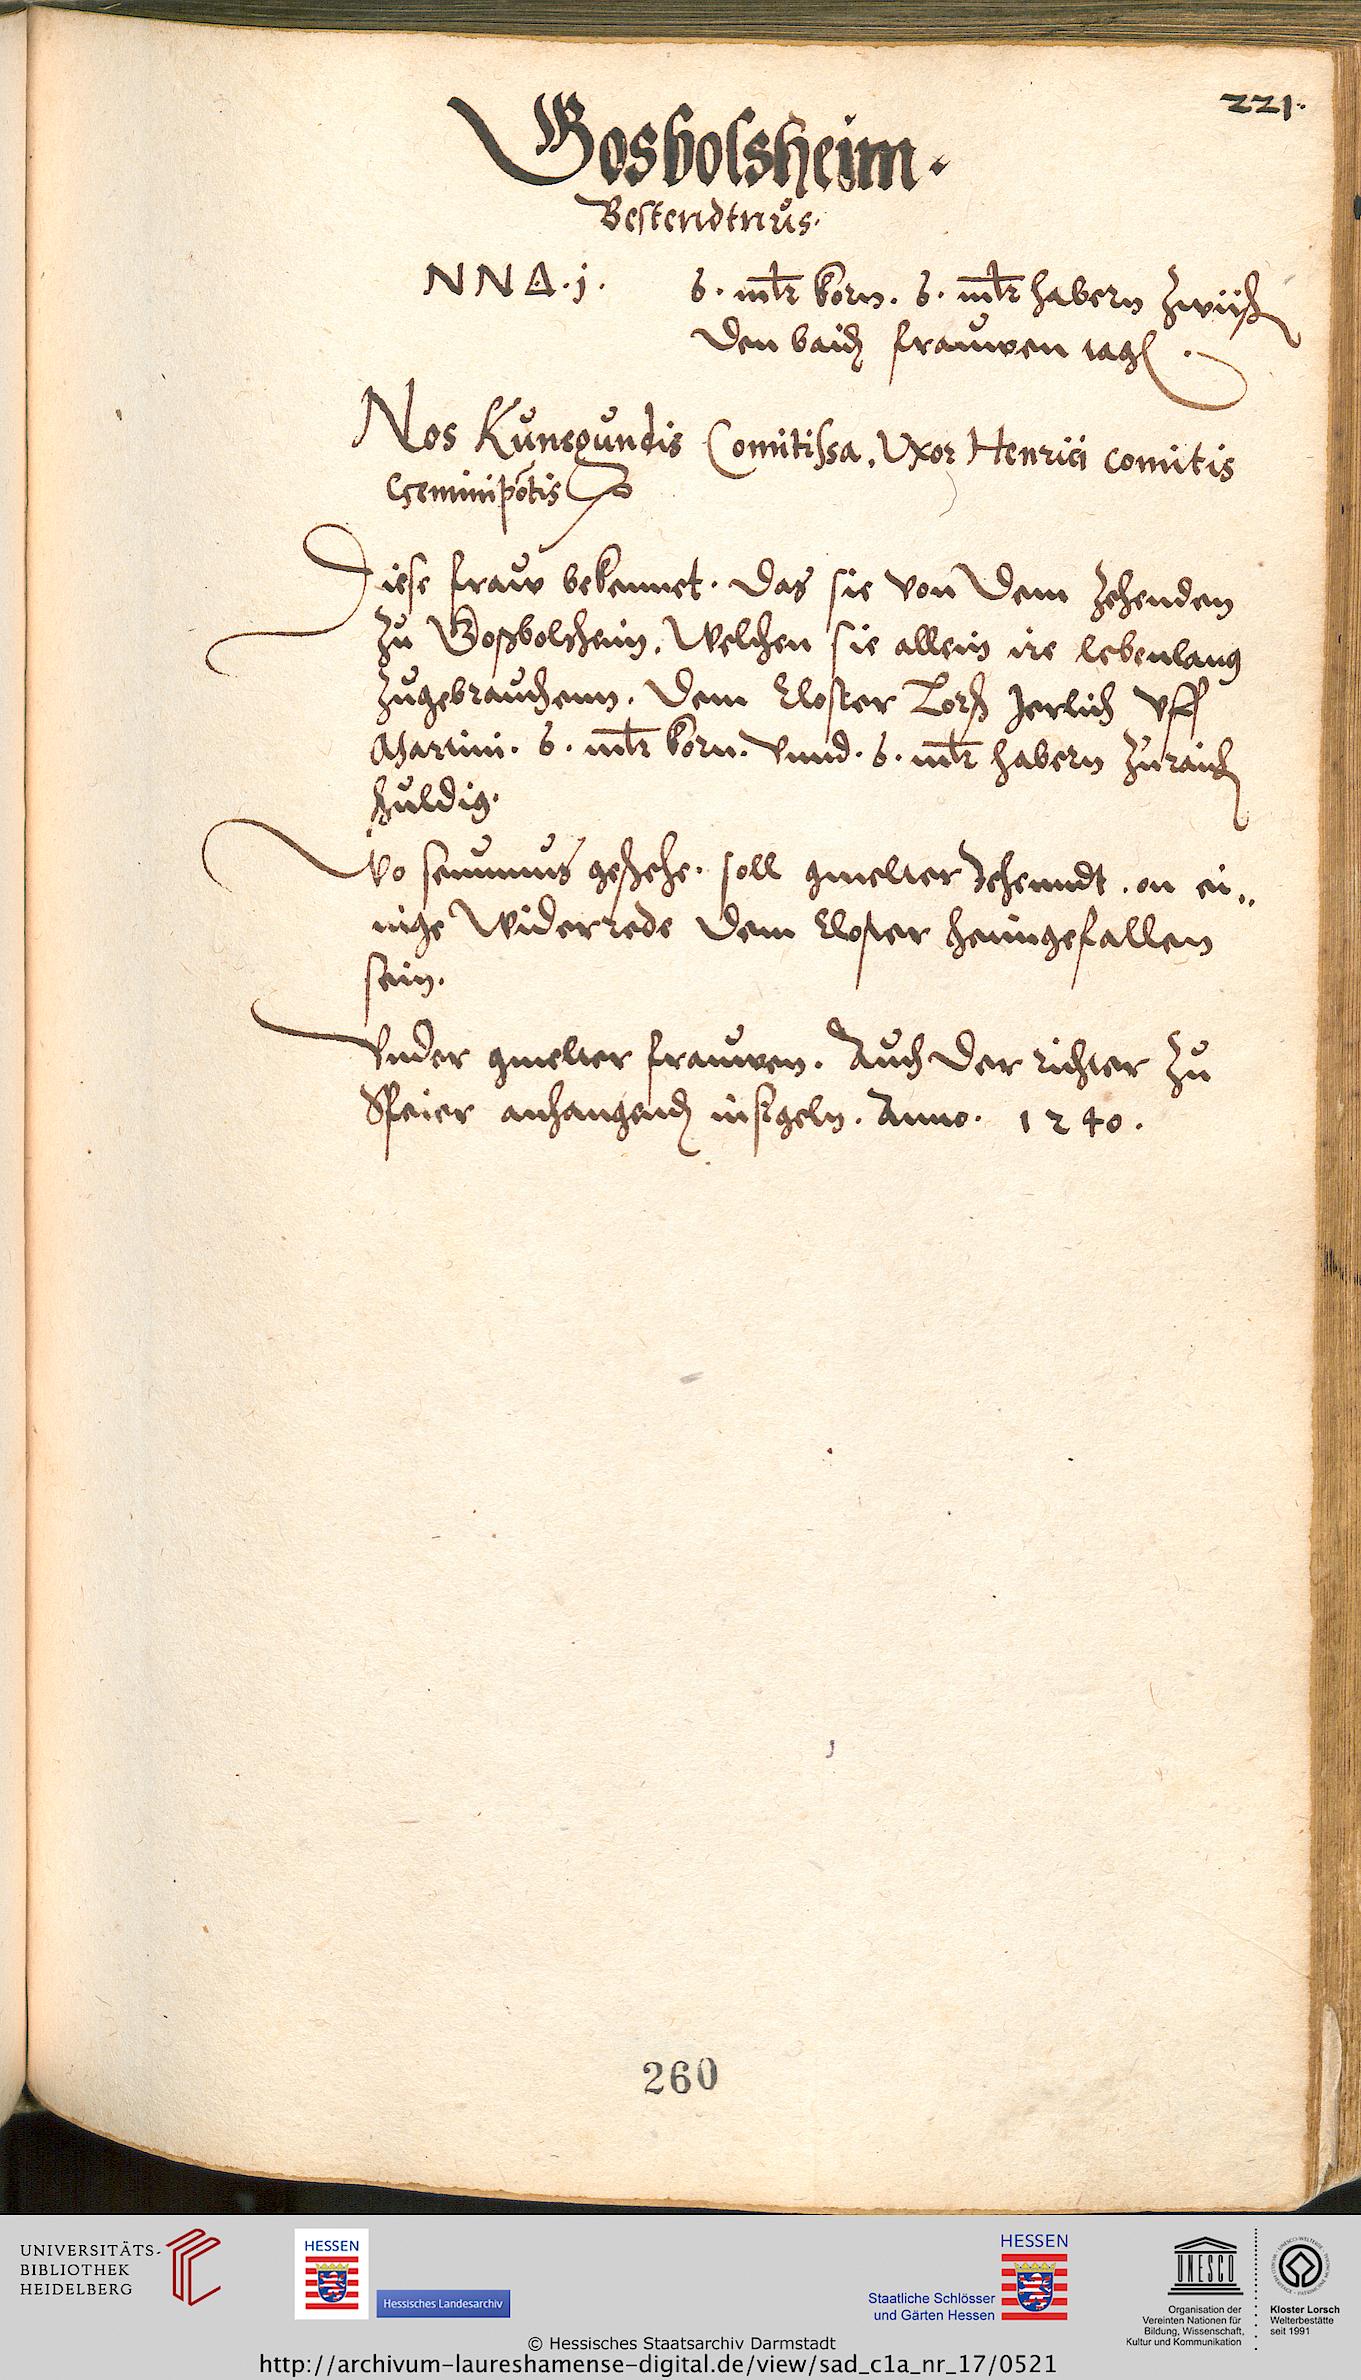 221.
Gosbolsheim.
Bestendtnus.
N N A. j. 6. mlr korn. 6. mlr habern zwüsch
den baid frauwen tag
Nos Kunegundis Comitissa, Vxor Henrici comitis
Geminipotis
Diese fraw bekennet. Das sie von Dem zehenden
zu Gosbolsheim, Welchen sie allein ire lebenlang
zugebrauchenn. Dem Closter Lorsch Jerlich vff
Martini. 6. mlr korn. vnnd. 6. mlr habern zuraich
schuldig.
Wo geschehe. soll gmelter zehenndt. on ei„
nige Widerrede Dem Closter heimgefallen
sein.
Vnder gmelter frauwen. Auch Der richter zu
Speier anhangend insigeln. Anno. 1240.
260
UNIVERSITÄTS-
BIBLIOTHEK
HEIDELBERG
HESSEN
Hessisches Landesarchiv
HESSEN
Staatliche Schlösser
und Gärten Hessen
UNESCO
Organisation der
Vereinten Nationen für
Bildung, Wissenschaft,
Kultur und Kommunikation
Kloster Lorsch
Welterbestätte
seit 1991
© Hessisches Staatsarchiv Darmstadt
http://archivum-laureshamense-digital.de/view/sad_c1a_nr_17/0521